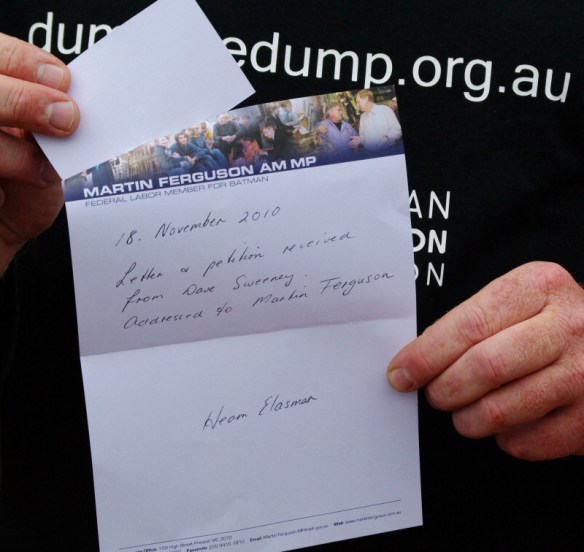 dum edump.org.au
MARTIN FERGUSON AM MP
FEDERAL LABOR MEMBER FOR BATMAN
18. November 2010
Letter & petition received
from Dave Sweeney.
Addressed to Martin Ferguson
Heam Elasmar
AN
ON
ON
Office: 159 High Street Preston VIC 3072
Facsimile: Email: Web: www.martinferguson.com.au